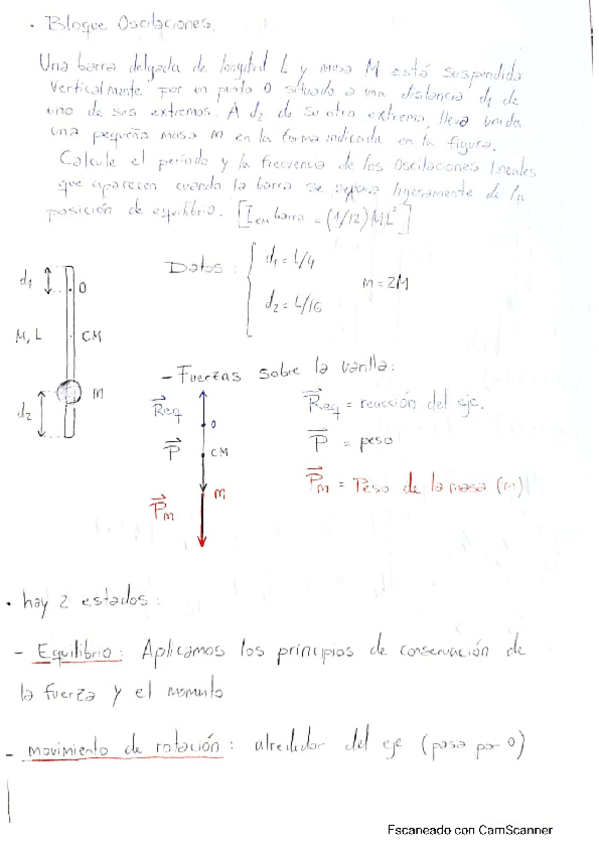 · Bloque Oscilaciones.
Una barra delgada de longitud L y masa M está suspendida
verticalmente por un punto O situado a una distancia d₁ de
uno de sus extremos. A d₂ de su otro extremo, lleva unida
una pequeña masa m en la forma indicada en la figura.
Calcule el periodo y la frecuencia de las oscilaciones lineales
que aparecen cuando la barra se separa ligeramente de la
posición de equilibrio. [I_CM barra = (1/12) ML²]
Datos:
d₁ = L/4
d₂ = L/16
m = 2M
d₁
O
M, L
CM
m
d₂
- Fuerzas sobre la varilla:
Req
O
P
CM
m
Pm
Req = reacción del eje.
P = peso
Pm = Peso de la masa (m)
· hay 2 estados:
- Equilibrio: Aplicamos los principios de conservación de
la fuerza y el momento
- movimiento de rotación: alrededor del eje (pasa por O)
Escaneado con CamScanner